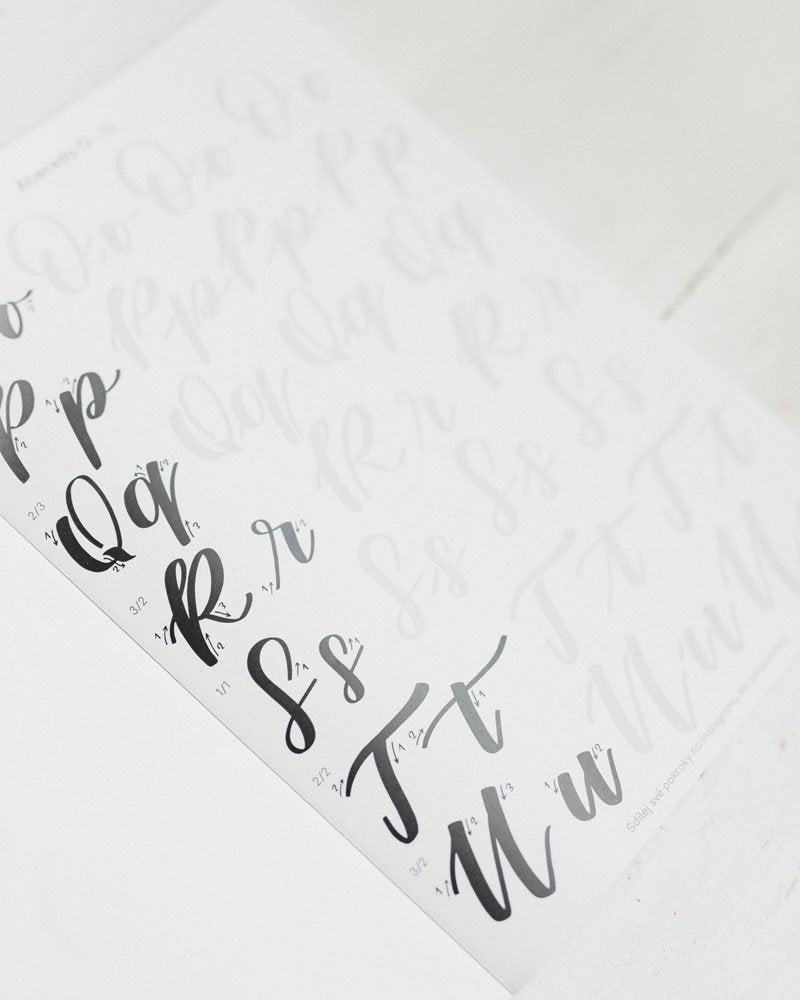 o Oo Oo Oo
Pp Pp Pp Pp
2/3 Qq Qq Qq Qq
3/2 Rr Rr Rr
1/1 Ss Ss Ss Ss
2/2 Tt Tt Tt
3/2 Uu Uu U
Sdílej své pokroky na Instagramu